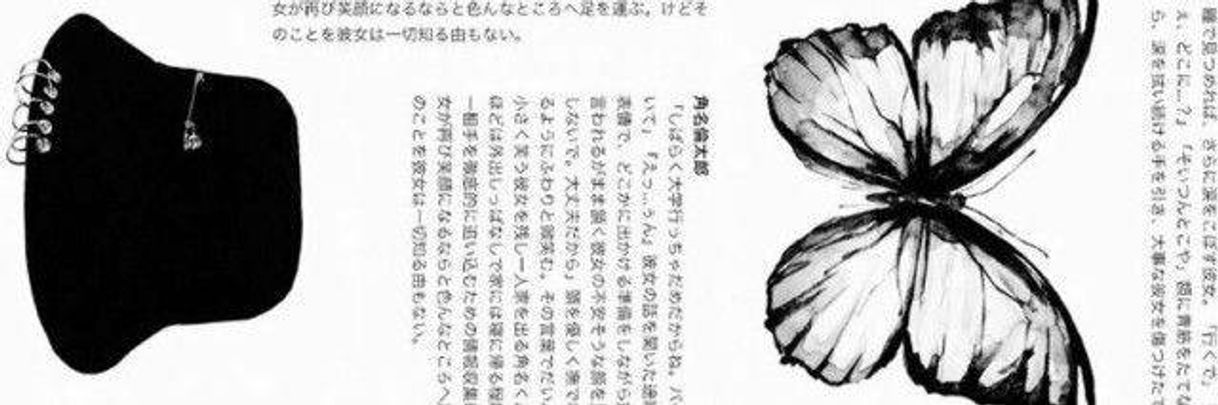 女が再び笑顔になるならと色んなところへ足を運ぶ。けどそ
のことを彼女は一切知る由もない。
角名倫太郎
「しばらく大学行っちゃだめだからね。バ
いて」「えっ…うん」彼女の話を聞いた途端
表情で、どこかに出かける準備をしながら
言われるがまま頷く彼女の不安そうな顔を
しないで。大丈夫だから」頭を優しく撫で
るようにふわりと微笑む。その言葉でだい
小さく笑う彼女を残し一人家を出る角名く
ほどは外出しっぱなしで家には寝に帰る程
一組手を徹底的に追い込むための情報収集
女が再び笑顔になるならと色んなところへ
のことを彼女は一切知る由もない。
瞳で見つめれば さらに涙をこぼす彼女。「行くで。
え、どこに…?」「そいつんとこや」額に青筋をたてな
ら、涙を拭い続ける手を引き、大事な彼女を傷つけた